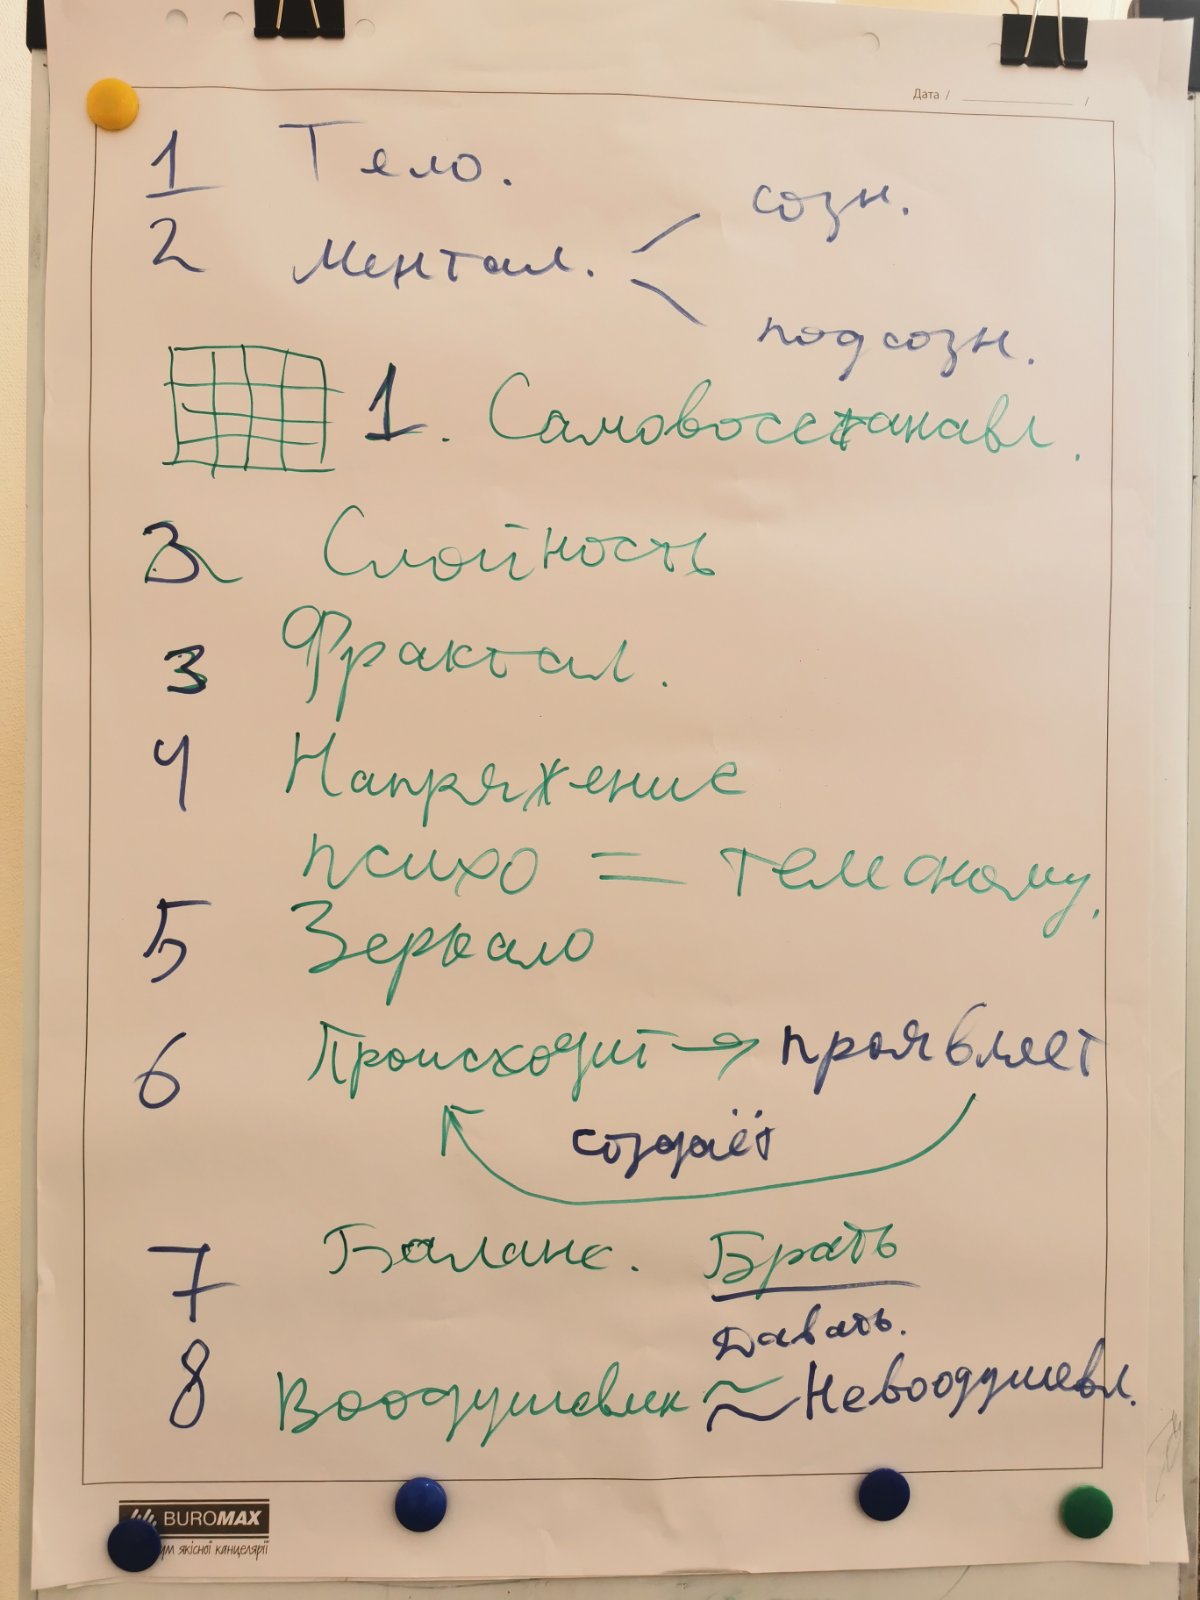 Дата / /
1 Тело.
созн.
2 Ментал.
подсозн.
1. Самовосстанавл.
2 Слойность
3 Фрактал.
4 Напряжение
психо = телесному.
5 Зеркало
6 Происходит → проявляет
создаёт
7 Баланс. Брать
Давать.
8 Воодушевлн ≈ Невоодушевл.
BUROMAX
ум якісної канцелярії